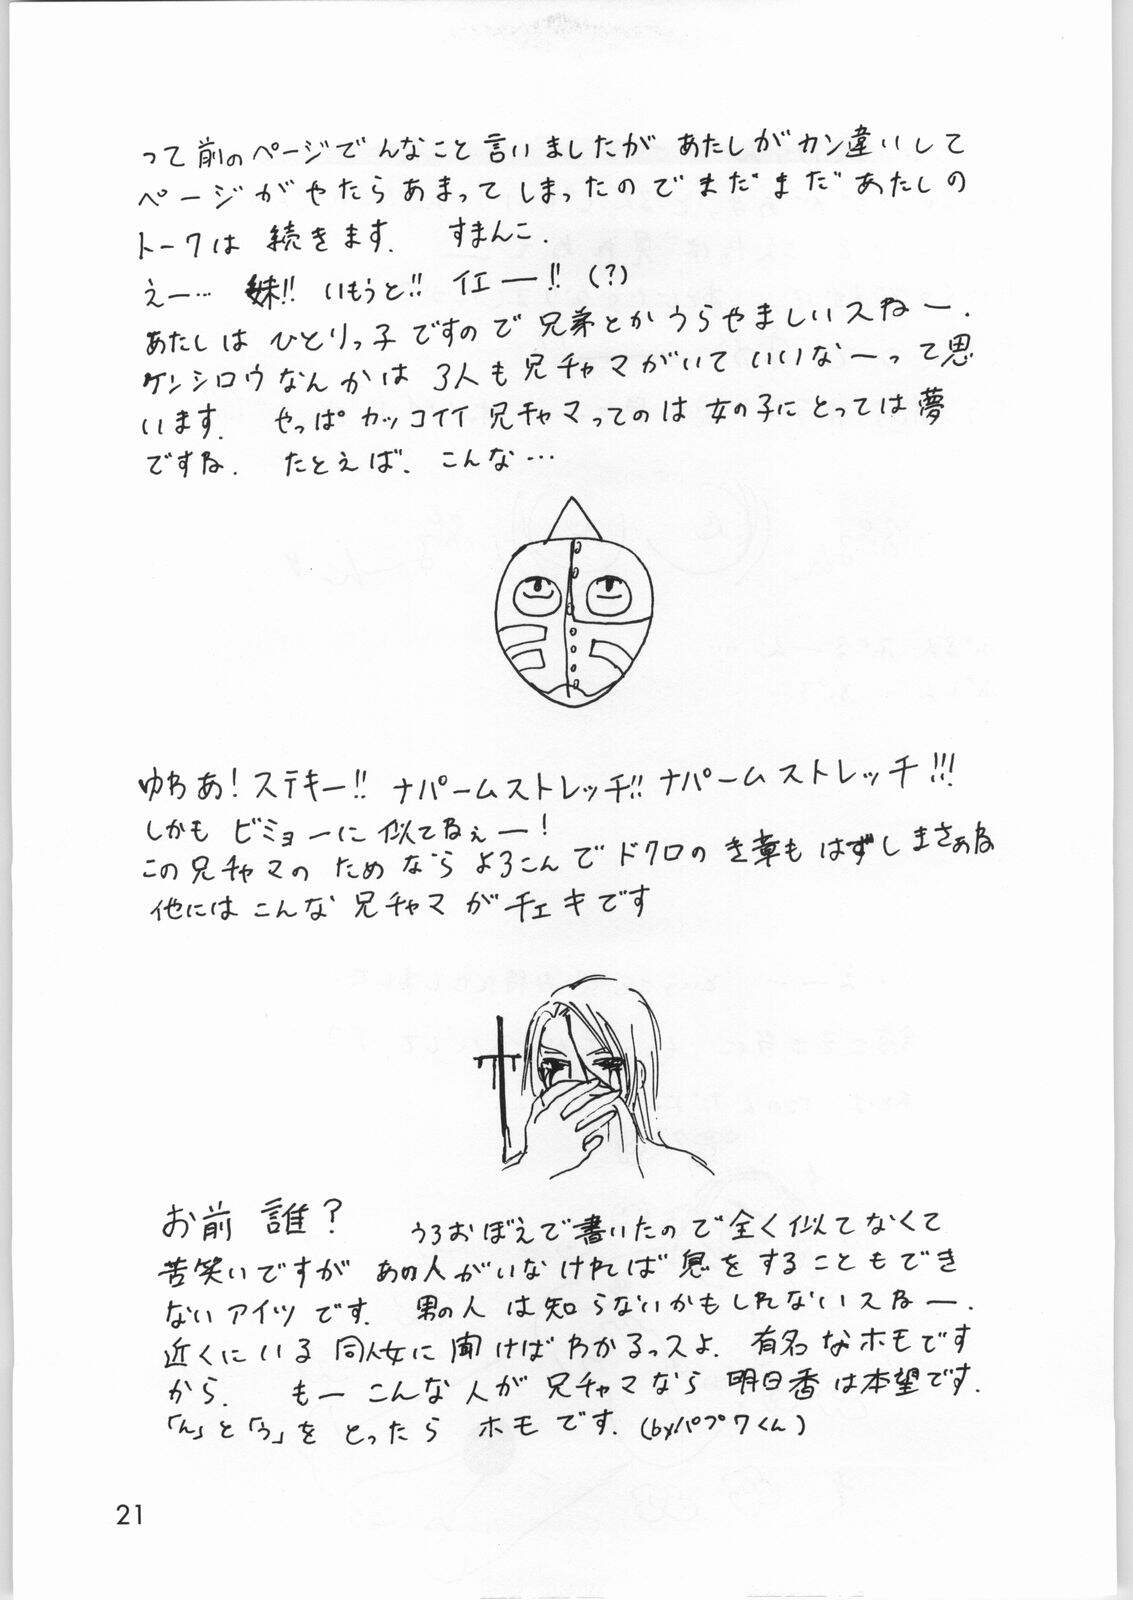 って前のページでんなこと言いましたが あたしがカン違いして
ページがやたらあまってしまったのでまだまだあたしの
トークは 続きます. すまんこ.
えー… 妹!! いもうと!! イエー!! (?)
あたしは ひとりっ子ですので兄弟とかうらやましいスねー.
ケンシロウなんかは 3人も兄チャマがいていいなーって思
います. やっぱカッコイイ兄チャマってのは女の子にとっては夢
ですね. たとえば、こんな…
ゆわあ! ステキー!! ナパームストレッチ!! ナパームストレッチ!!!
しかも ビミョーに似てるぇー!
この兄チャマの ためなら よろこんで ドクロの き章も はずしまさぁね
他には こんな 兄チャマ が チェキです
お前 誰? うろおぼえで書いたので全く似てなくて
苦笑いですが あの人がいなければ息をすることもでき
ないアイツです. 男の人は知らないかもしれないスねー.
近くにいる同人女に聞けばわかるっスよ. 有名なホモです
から. もー こんな人が兄チャマなら 明日香は本望です.
「ん」と「う」を とったら ホモです. (byパプワくん)
21